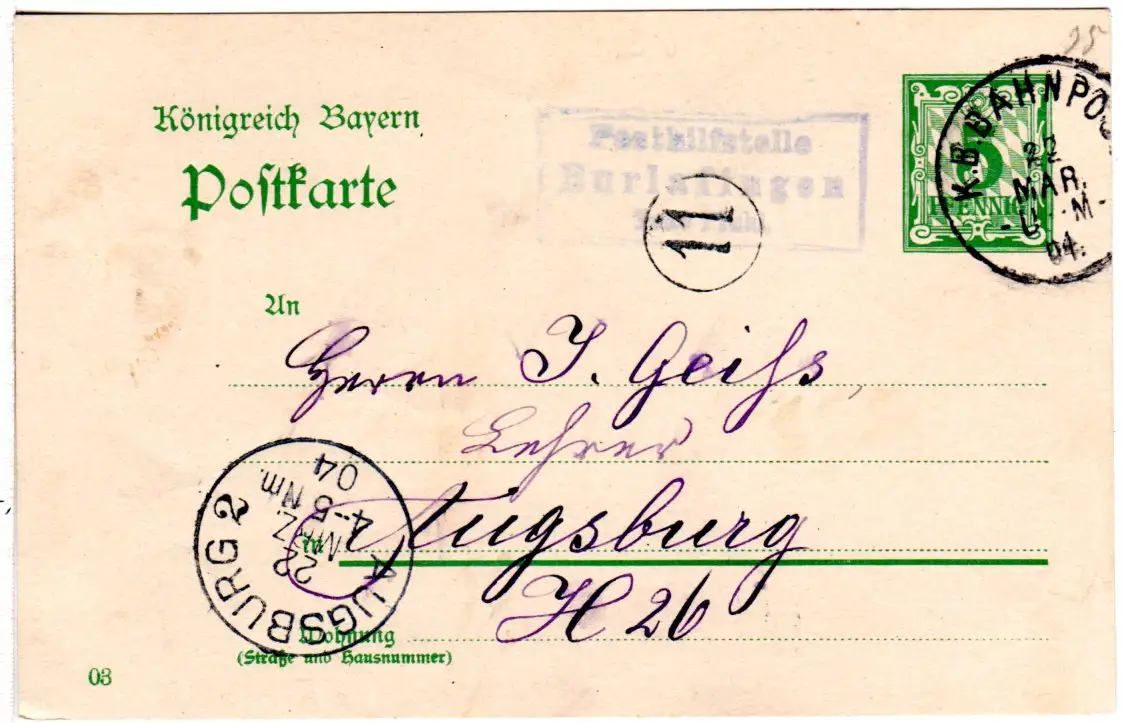 25
Königreich Bayern
Postkarte
Posthilfstelle
Burlafingen
11
5
PFENNIG
K.B.BAHNPOS
22
MAR.
U.-M-
04.
An
Herrn J. Geiß,
Lehrer
in Augsburg
H 26
AUGSBURG 2
22
MRZ.
4-5 Nm.
04
Wohnung
(Straße und Hausnummer)
03